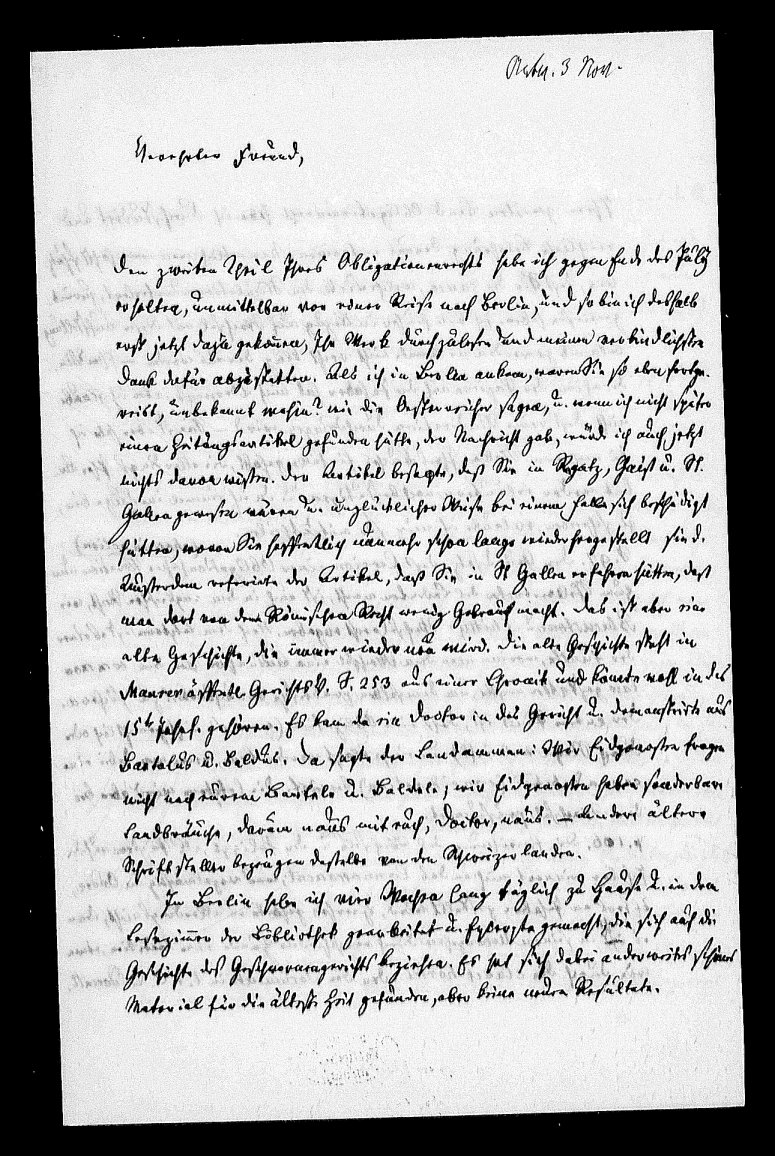 3 Nov.
Verehrter Freund,
Den zweiten Theil Ihres Obligationenrechts habe ich gegen Ende des July
erhalten, unmittelbar vor einer Reise nach Berlin, und so bin ich deshalb
erst jetzt dazu gekommen, Ihr Werk durchzulesen und meinen verbindlichsten
Dank dafür abzustatten. Als ich in Berlin ankam, waren Sie so eben fortge-
reist, unbekannt wohin? wie die Oesterreicher sagen, u. wenn ich nicht später
einen Zeitungsartikel gefunden hätte, der Nachricht gab, würde ich auch jetzt
nichts davon wissen. Der Artikel besagte, daß Sie in Ragatz, Gais u. St.
Gallen gewesen wären u. unglücklicher Weise bei einem Falle sich beschädigt
hätten, wovon Sie hoffentlich nunmehr schon längst wiederhergestellt sind.
Außerdem referirte der Artikel, daß Sie in St Gallen erfahren hätten, daß
man dort von dem Römischen Recht wenig Gebrauch macht. Das ist aber eine
alte Geschichte, die immer wieder neu wird. Die alte Geschichte steht in
Maurer öffentl Gerichtsv. S. 253 aus einer Chronik und könnte wohl in das
15te Jahrh. gehören. Es kam da ein Doctor in das Gericht u. demonstrirte aus
Bartolus u. Baldus. Da sagte der Landamman: Wir Eidgenossen fragen
nicht nach eurem Bartele u. Baldele, wir Eidgenossen haben sonderbare
Landbräuche, darum naus mit euch, Doctor, naus. – Andere ältere
Schriftsteller bezeugen dasselbe von den Schweizerlanden.
In Berlin habe ich vier Wochen lang täglich zu Hause u. in dem
Lesezimmer der Bibliothek gearbeitet u. Excerpte gemacht, die sich auf die
Geschichte des Geschwornengerichts beziehen. Es hat sich dabei anderweites schönes
Material für die älteste Zeit gefunden, aber keine neuen Resultate.